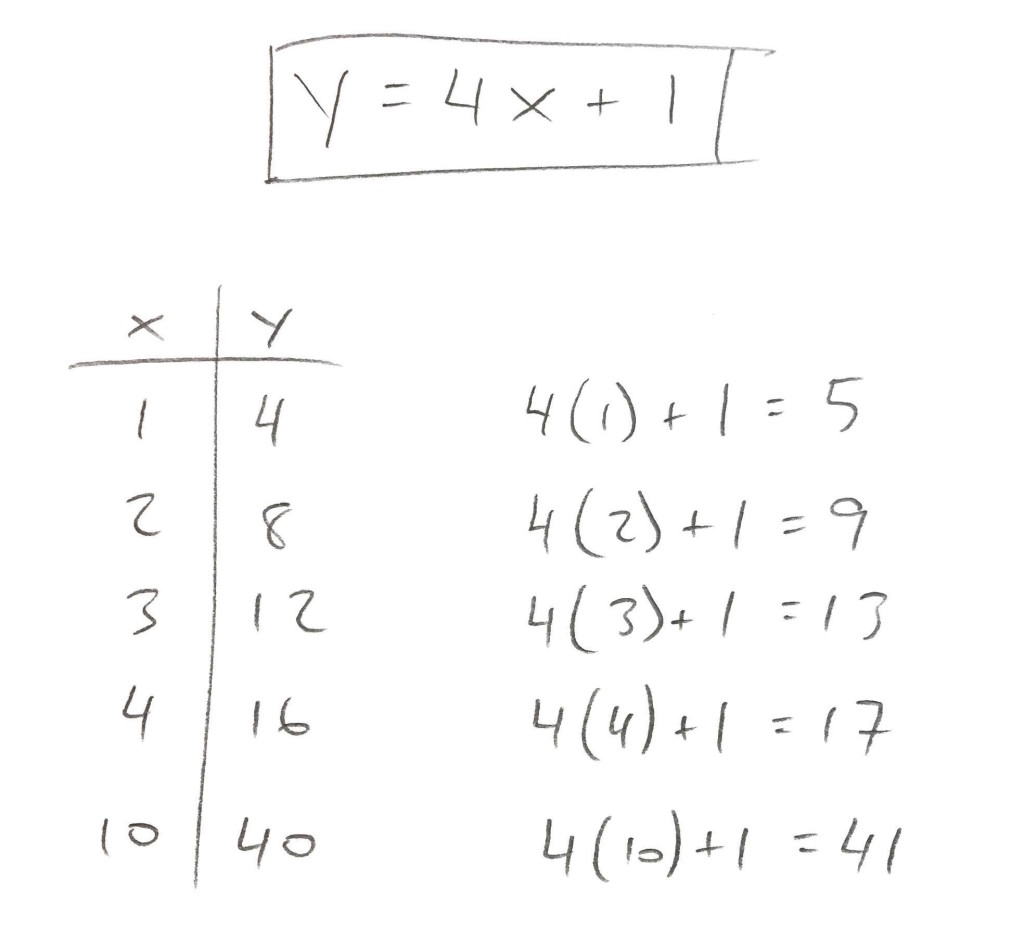 y = 4x + 1
x y
1 4 4(1) + 1 = 5
2 8 4(2) + 1 = 9
3 12 4(3) + 1 = 13
4 16 4(4) + 1 = 17
10 40 4(10) + 1 = 41